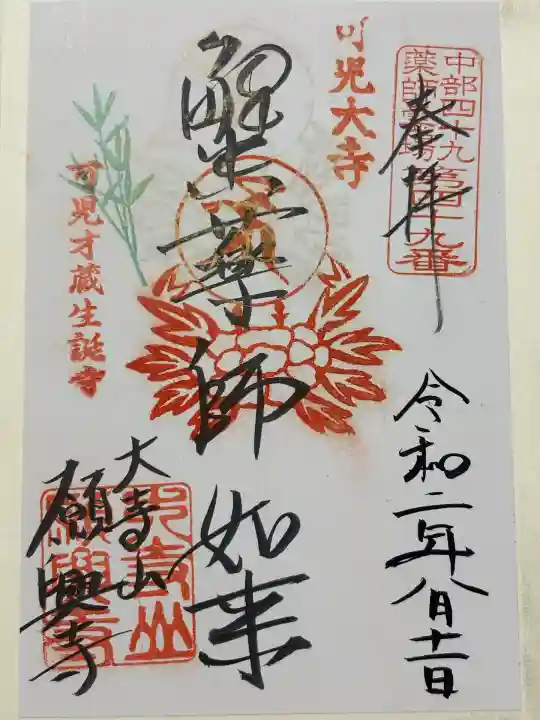 中部四十九
薬師霊場第四十九番
奉拝
令和二年八月十二日
可児大寺
蟹薬師如来
可児才蔵生誕寺
大寺山
願興寺